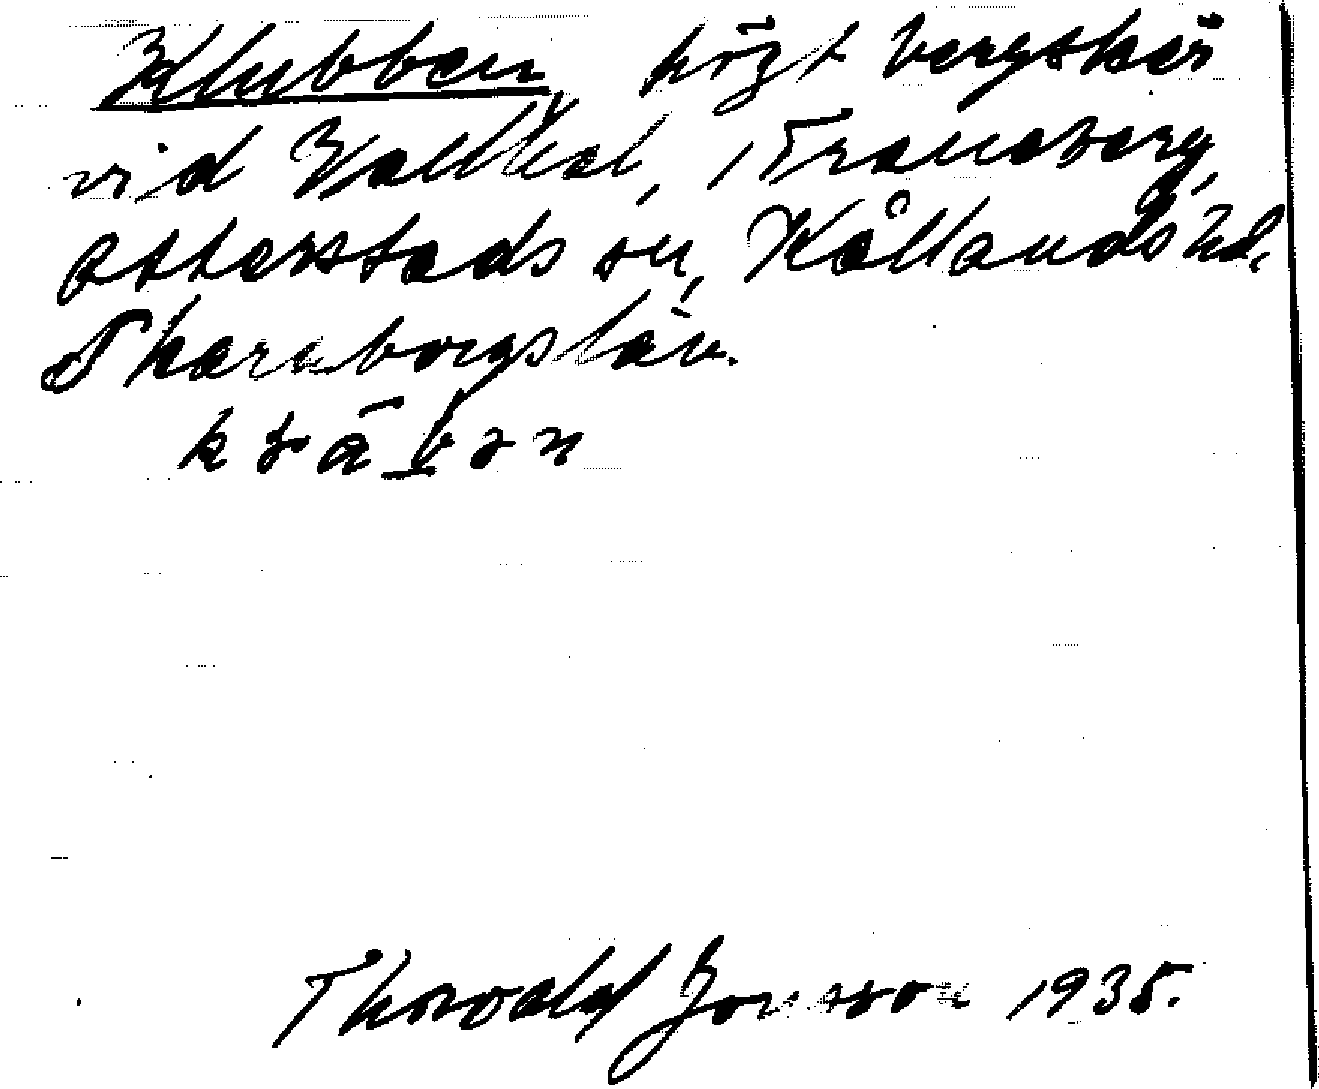 Klubben högt bergskär
vid Vallhal, Traneberg,
Otterstads sn, Kållands hd.
Skaraborgs län.
Thorvald Jonsson 1935.